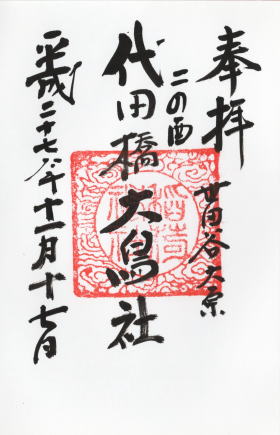 奉拝
世田谷大原
二の酉
代田橋大鳥社
平成二十七年十一月十七日